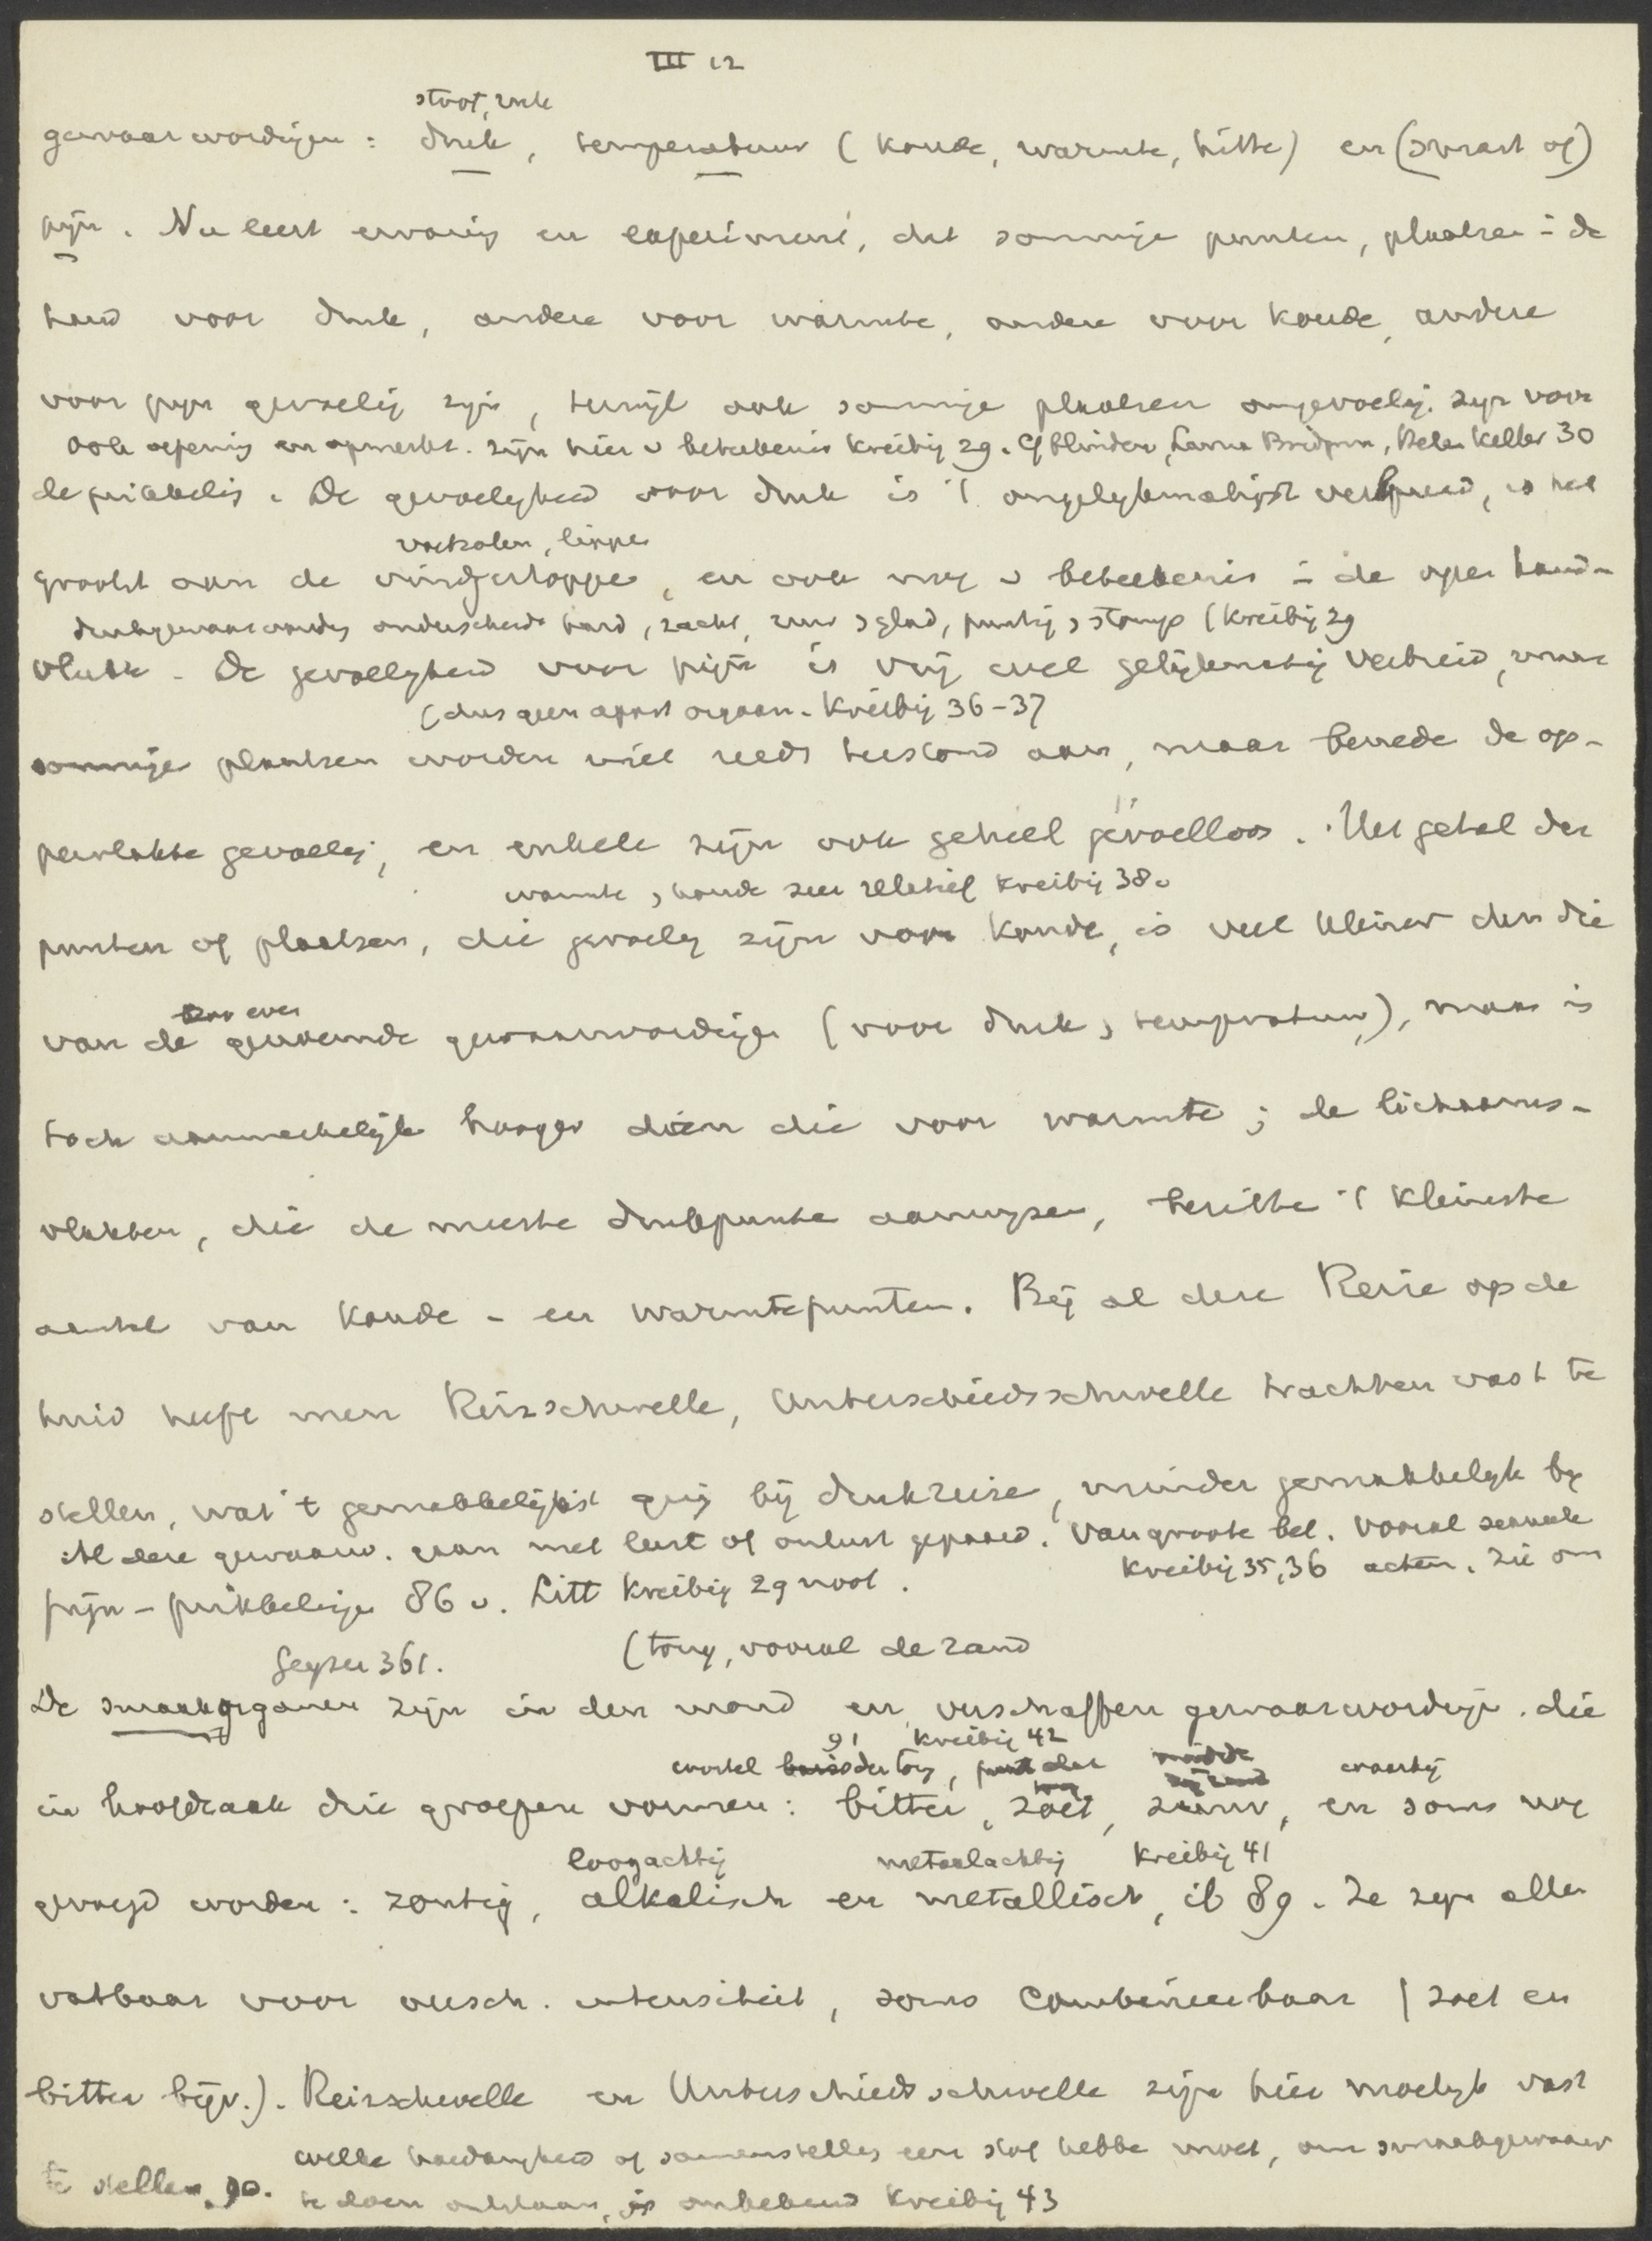 III 12
stoot, ruk
gewaarwordingen : druk, temperatuur (koude, warmte, hitte) en (smart of)
pijn. Nu leert ervaring en experiment, dat sommige punten, plaatsen in de
huid voor druk, andere voor warmte, andere voor koude, andere
voor pijn gevoelig zijn, terwijl ook sommige plaatsen ongevoelig zijn voor
ook oefening en opmerkz. zijn hier v beteekenis Kreibig 29. Cf blinden, Laura Bridgman, Helen Keller 30
de prikkeling. De gevoeligheid voor druk is 't ongelijkmatigst verspreid, is het
voetzolen, lippen
grootst aan de vingertoppen, en ook nog v beteekenis in de open hand-
drukgewaarwording onderscheidt hard, zacht, ruw, glad, puntig, stomp (Kreibig 29
vlakte. De gevoeligheid voor pijn is vrij wel gelijkmatig verbreid, maar
(dus geen apart orgaan. Kreibig 36-37
sommige plaatsen worden niet reeds terstond aan, maar beneden de op-
pervlakte gevoelig, en enkele zijn ook geheel gevoelloos. Het getal der
warmte, koude zeer relatief Kreibig 38.
punten of plaatsen, die gevoelig zijn voor koude, is veel kleiner dan die
zoo even
van de genoemde gewaarwordingen (voor druk, temperatuur), maar is
toch aanmerkelijk hooger dan die voor warmte; de lichaams-
vlakken, die de meeste drukpunten aanwijzen, bezitten 't kleinste
aantal van koude- en warmtepunten. Bij al deze Reize op de
huid heeft men Reizschwelle, Unterschiedsschwelle trachten vast te
stellen, wat 't gemakkelijkst ging bij drukreize, minder gemakkelijk bij
Al deze gewaarw. gaan met lust of onlust gepaard. Van groote bet. vooral sexueele
Kreibig 35, 36
pijn-prikkelingen 86 v. Litt Kreibig 29 noot.
Geyser 361.
(tong, vooral de rand
De smaakorganen zijn in den mond en verschaffen gewaarwordingen. die
91 Kreibig 42
wortel der tong, waarbij
in hoofdzaak drie groepen vormen: bitter, zoet, zuur, en soms nog
loogachtig metaalachtig Kreibig 41
gevoegd worden: zoutig, alkalisch en metallisch, ib 89. Ze zijn allen
vatbaar voor versch. intensiteit, soms combineerbaar (zoet en
bitter bijv.). Reizschwelle en Unterschiedsschwelle zijn hier moeilijk vast
welke hoedanigheid of samenstelling een stof hebben moet, om smaakgewaarw
te stellen 90.
te doen ontstaan, is onbekend Kreibig 43